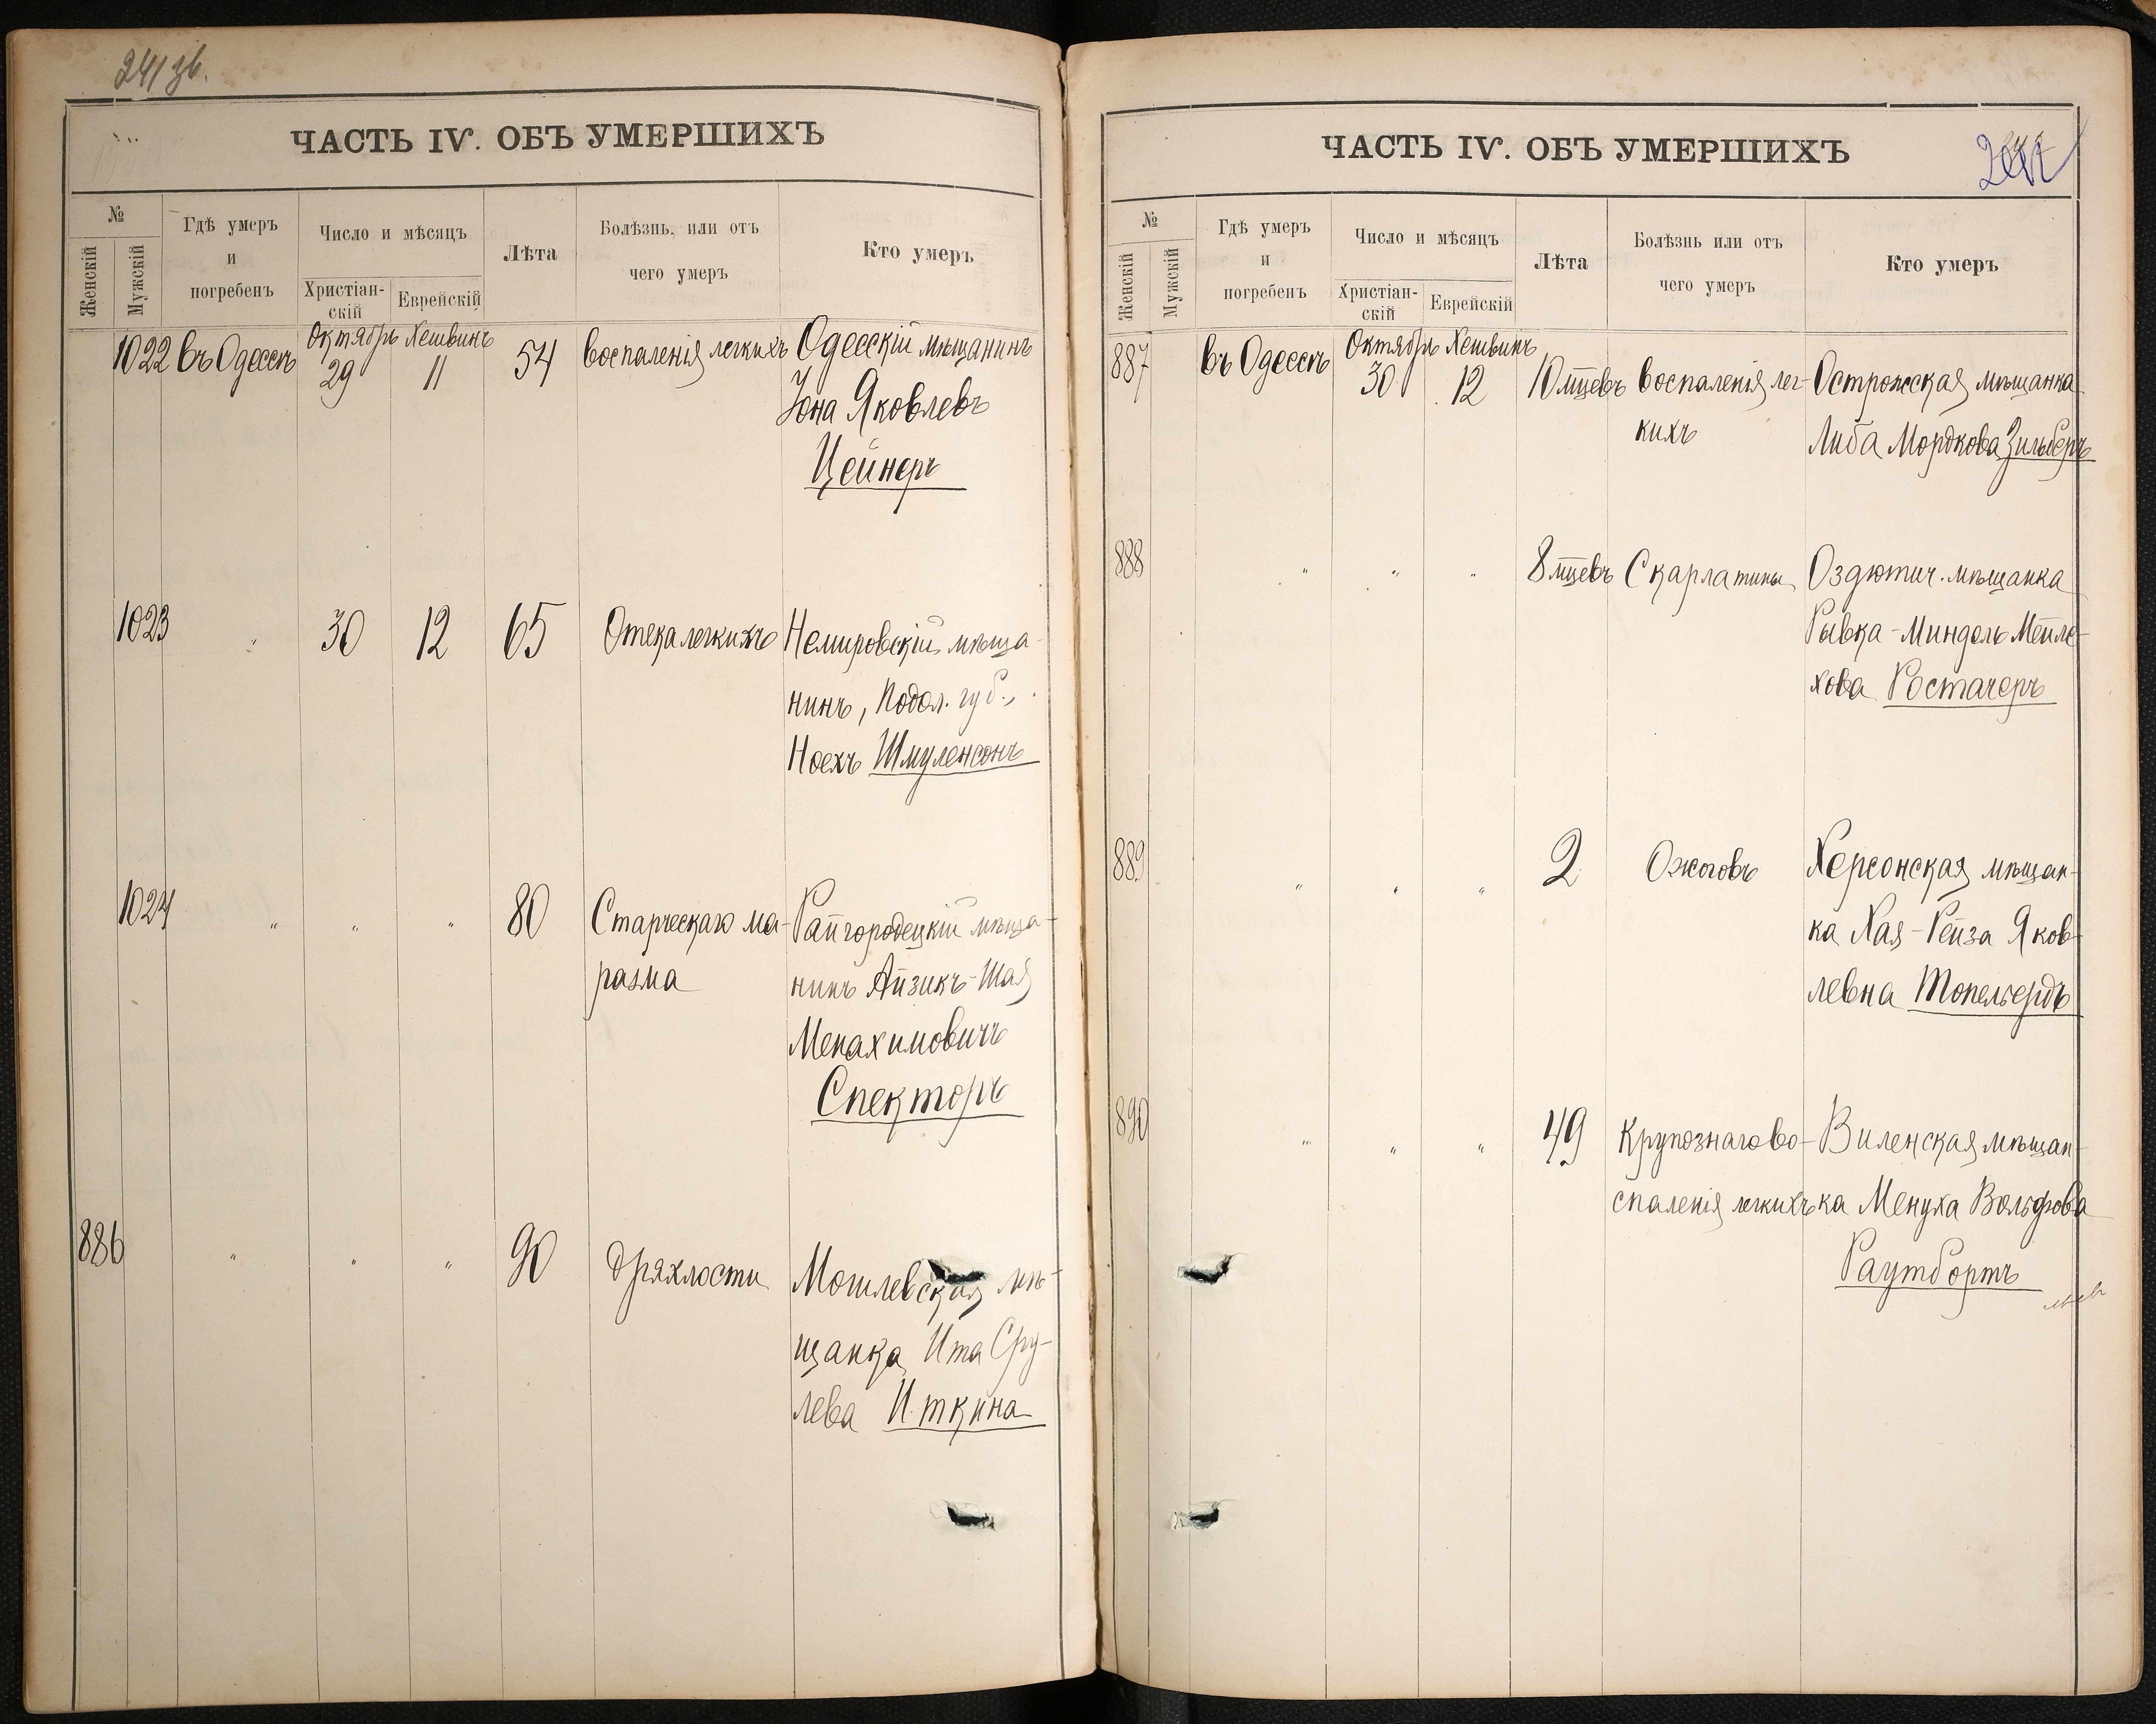 241 зв.
ЧАСТЬ IV. ОБЪ УМЕРШИХЪ
№
Женскій
Мужскій
Гдѣ умеръ
и
погребенъ
Число и мѣсяцъ
Христіан-
скій
Еврейскій
Лѣта
Болѣзнь, или отъ
чего умеръ
Кто умеръ
1022 въ Одессѣ Октябрь 29 Хешвинъ 11 54 воспаленія легкихъ Одесскій мѣщанинъ
Іона Яковлевъ
Цейнеръ
1023 " 30 12 65 Отека легкихъ Немировскій мѣща-
нинъ, Подол. губ.,
Ноехъ Шмуленсонъ
1024 " " " 80 Старческаго ма- Райгородецкій мѣща-
разма нинъ Айзикъ-Шая
Менахимовичъ
Спекторъ
886 " " " 90 дряхлости Могилевская мѣ-
щанка Ита Сру-
лева Иткина
ЧАСТЬ IV. ОБЪ УМЕРШИХЪ
№
Женскій
Мужскій
Гдѣ умеръ
и
погребенъ
Число и мѣсяцъ
Христіан-
скій
Еврейскій
Лѣта
Болѣзнь или отъ
чего умеръ
Кто умеръ
887 въ Одессѣ Октябрь 30 Хешвинъ 12 10 мцевъ воспаленія лег- Острожская мѣщанка
кихъ Либа Мордкова Зильберъ
888 " " " 8 мцевъ Скарлатины Оздютич. мѣщанка
Рывка-Миндель Мейле-
хова Ростачеръ
889 " " " 2 Ожоговъ Херсонская мѣщан-
ка Хая-Рейза Яков-
левна Топельбердъ
890 " " " 49 Крупознаго во- Виленская мѣщан-
спаленія легкихъ ка Менуха Вольфова
Раутбортъ